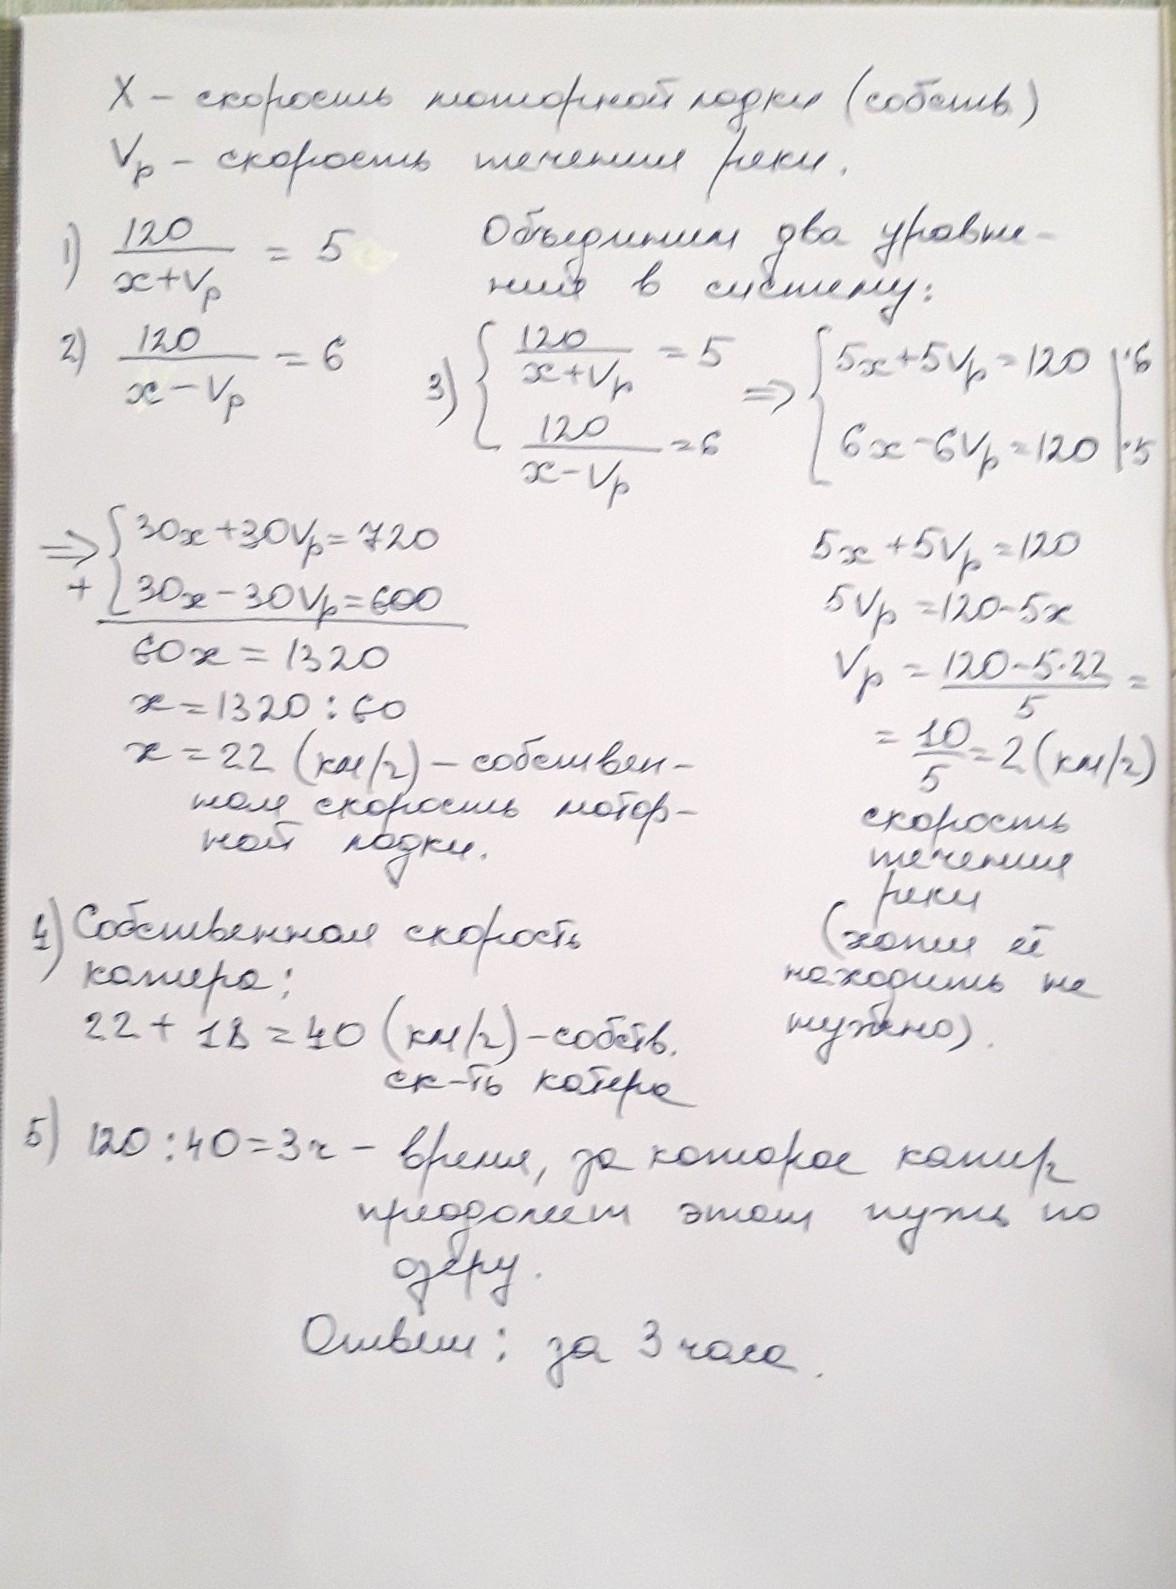 X – скорость моторной лодки (собств.)
Vр – скорость течения реки.
1) 120/(x+Vр) = 5
2) 120/(x–Vр) = 6
Объединим два уравне-
ния в систему:
3) { 120/(x+Vр) = 5
120/(x–Vр) = 6
=> { 5x+5Vр=120 | ·6
6x–6Vр=120 | ·5
=> { 30x+30Vр=720
+ 30x–30Vр=600
60x=1320
x=1320:60
x=22 (км/ч) – собствен-
ная скорость мотор-
ной лодки.
5x+5Vр=120
5Vр=120–5x
Vр = (120–5·22)/5 =
= 10/5 = 2 (км/ч)
скорость
течения
реки
(хотя её
находить не
нужно).
4) Собственная скорость
катера:
22+18=40 (км/ч) – собств.
ск-ть катера
5) 120:40=3ч – время, за которое катер
преодолеет этот путь по
озеру.
Ответ: за 3 часа.